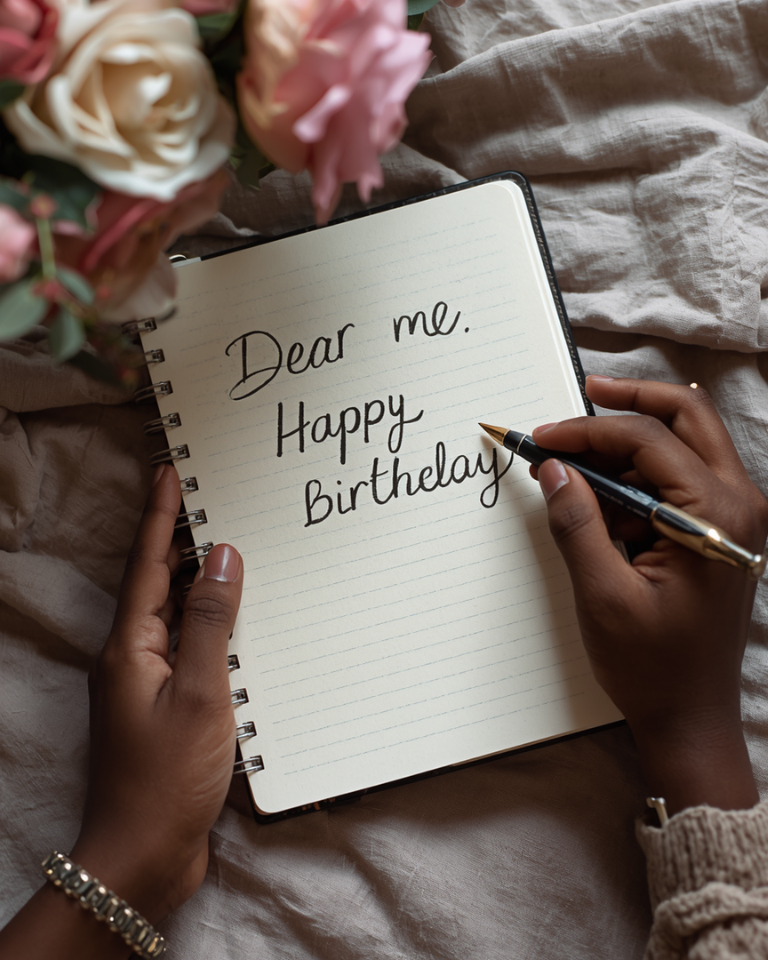 Dear me.
Happy
Birthday